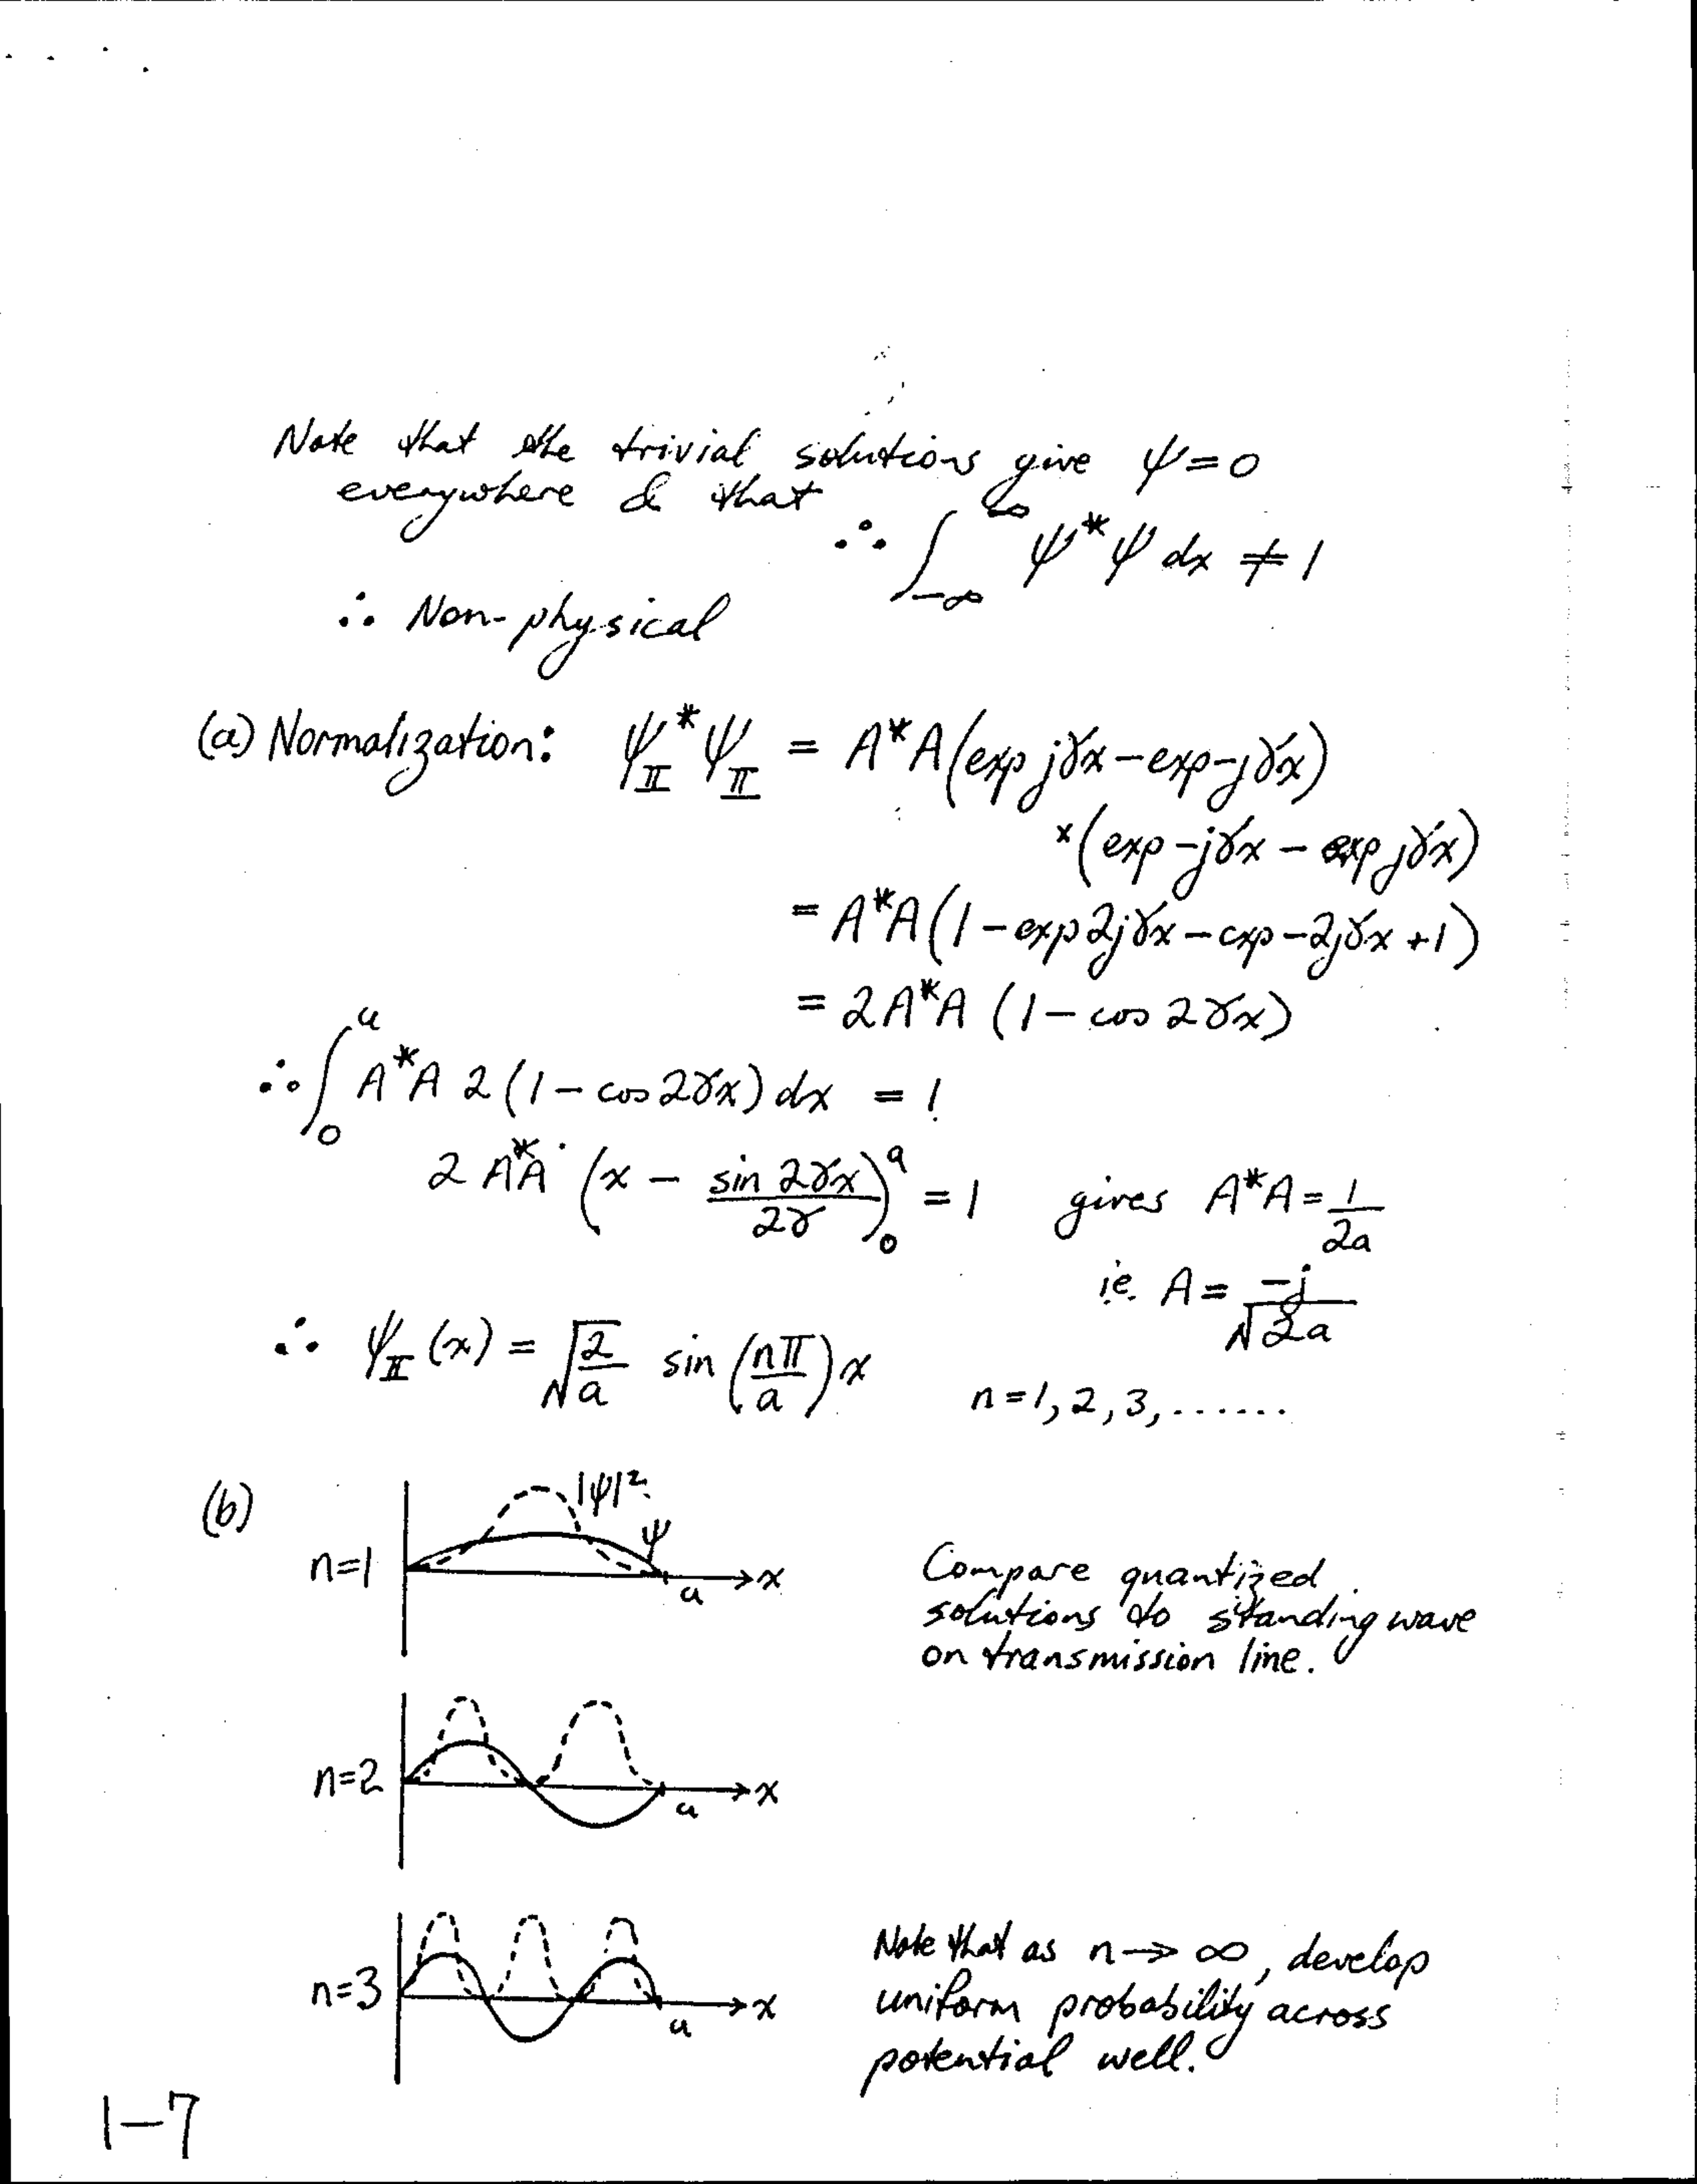 Note that the trivial solutions give ψ=0
everywhere & that
∴ ∫_{-∞}^{∞} ψ*ψ dx ≠ 1
∴ Non-physical
(a) Normalization: ψ_II* ψ_II = A*A(exp jγx − exp−jγx)
×(exp −jγx − exp jγx)
= A*A(1 − exp 2jγx − exp −2jγx + 1)
= 2A*A (1 − cos 2γx)
∴ ∫_0^a A*A 2 (1 − cos 2γx) dx = 1
2 A*A (x − sin 2γx / 2γ)_0^a = 1 gives A*A = 1/2a
ie. A = −j/√2a
∴ ψ_II (x) = √(2/a) sin (nπ/a) x n = 1, 2, 3, ......
(b)
|ψ|²
ψ
n=1
a
x
Compare quantized
solutions to standing wave
on transmission line.
n=2
a
x
n=3
a
x
Note that as n → ∞, develop
uniform probability across
potential well.
1−7